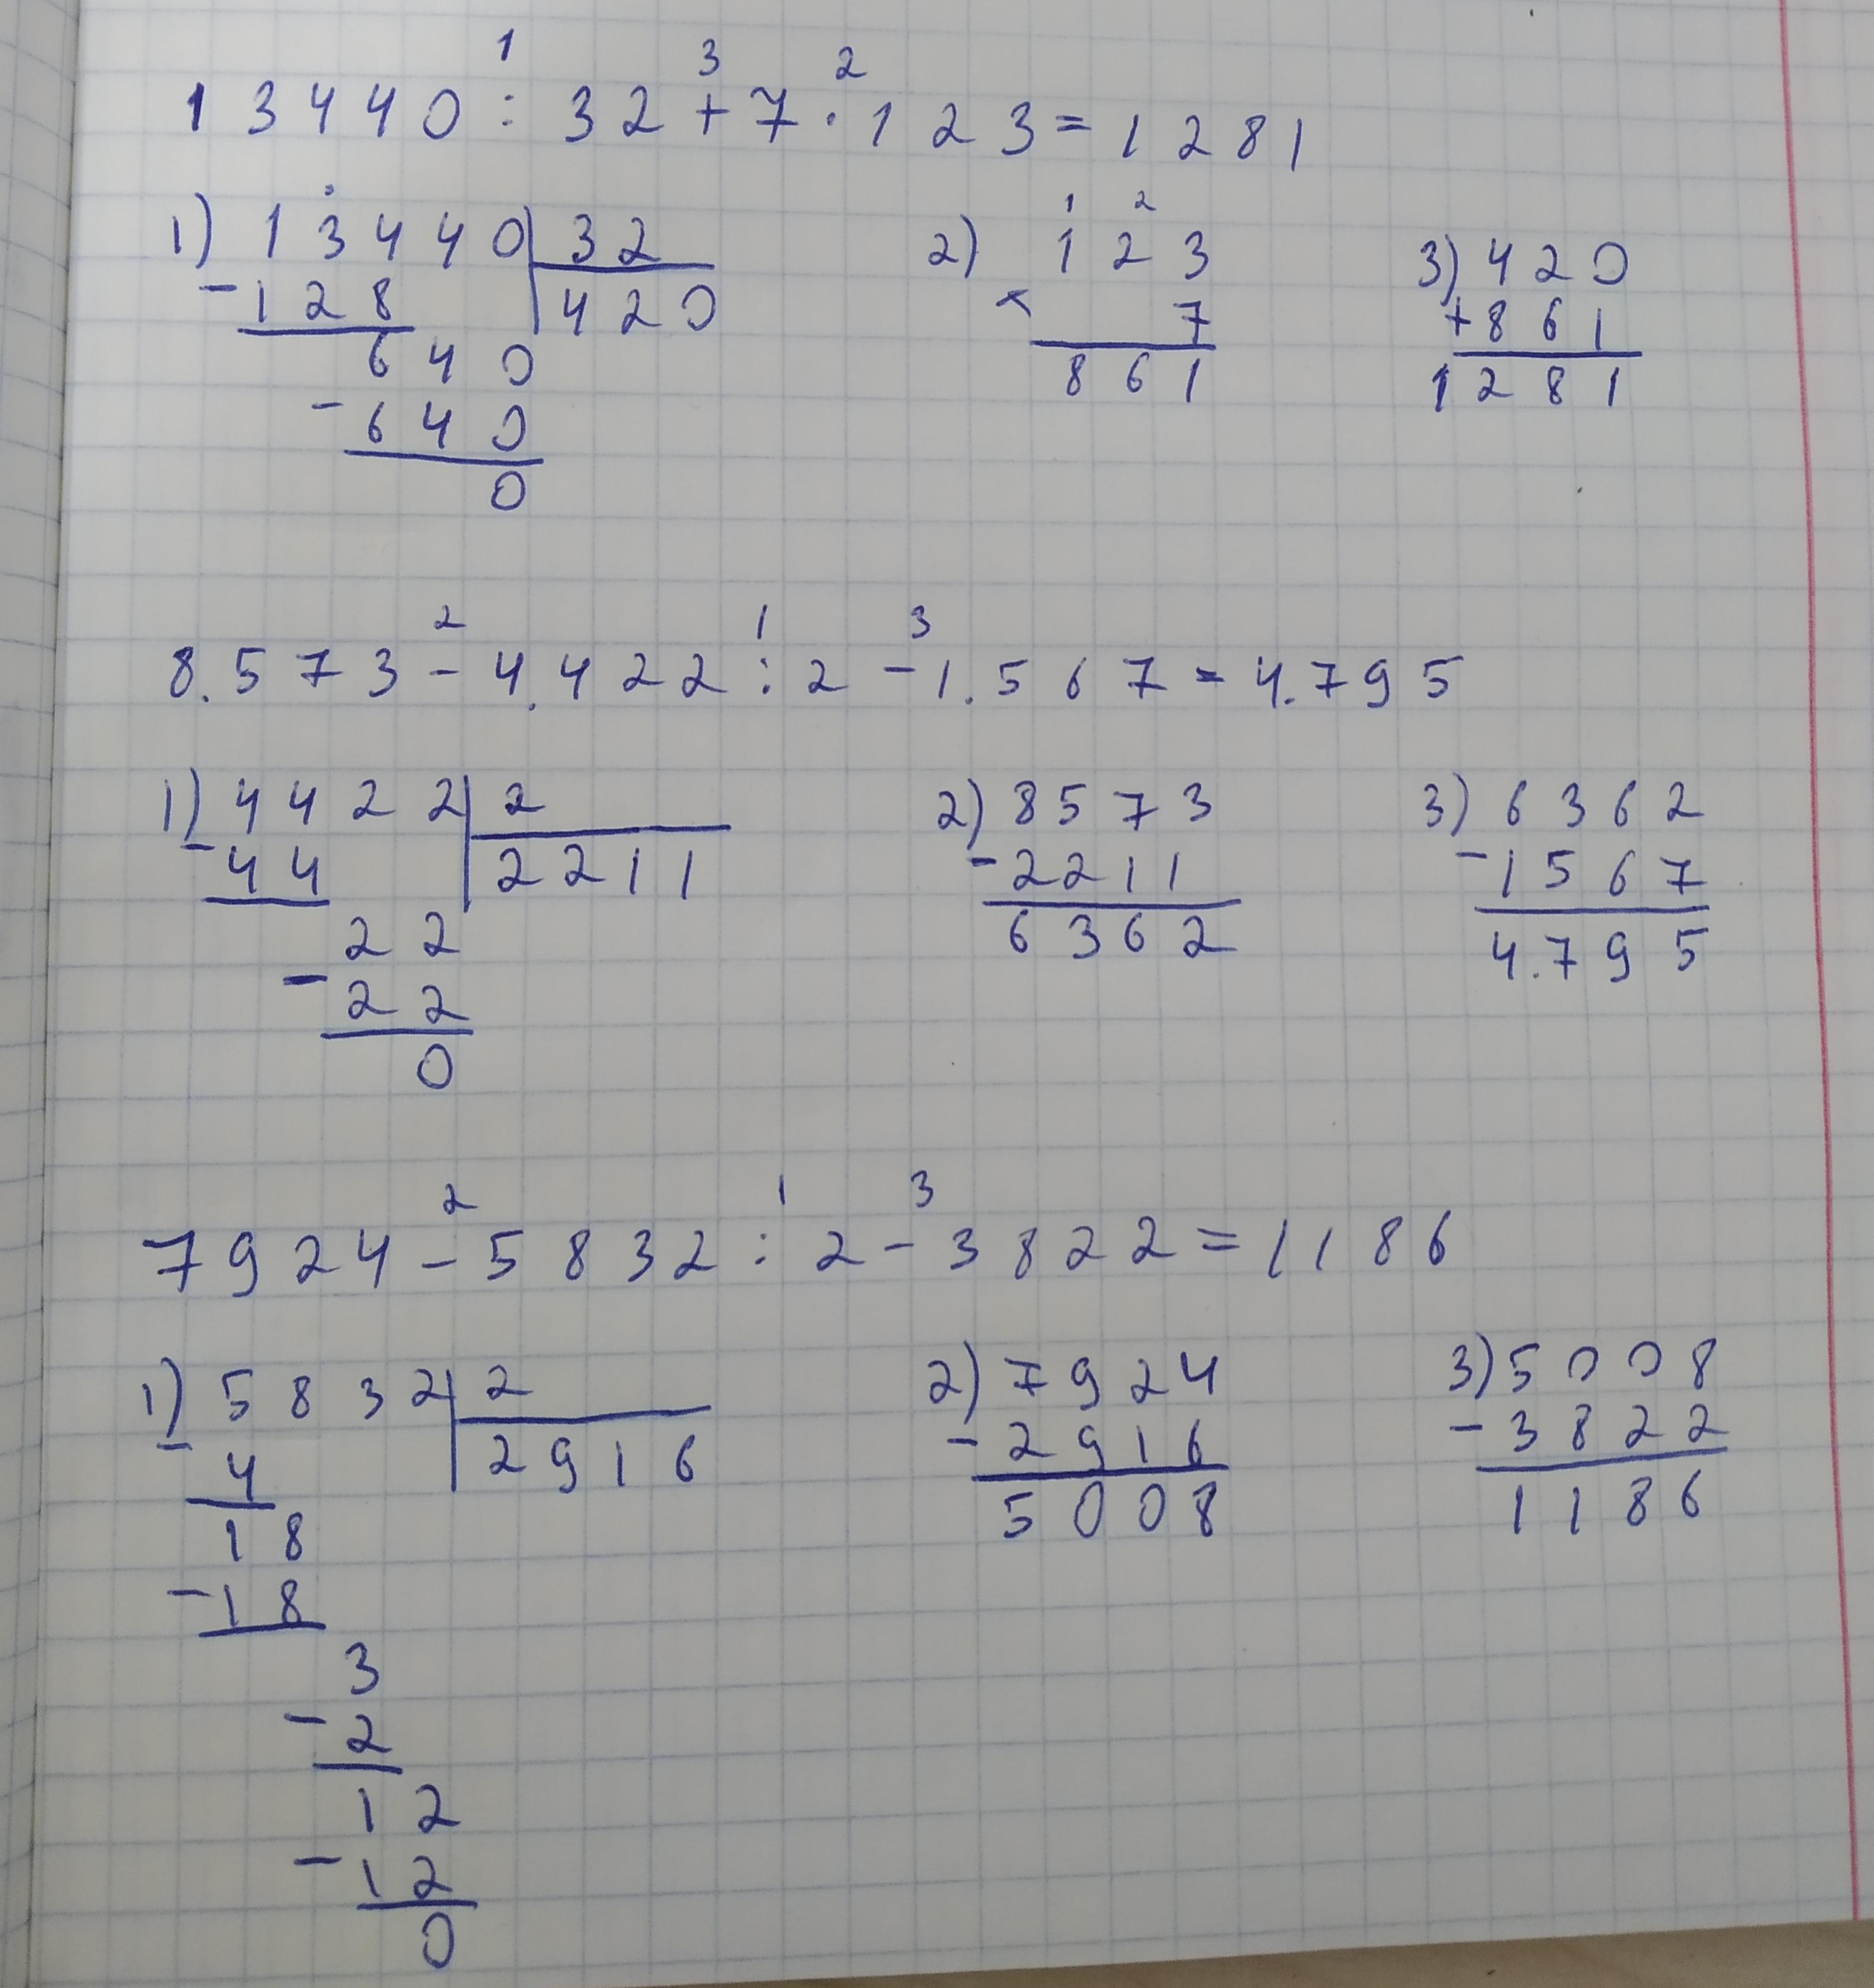 1 3 2
13440 : 32 + 7 · 123 = 1281
1) 13440 32 2) 1 2 123 3) 420
- 128 420 × 7 + 861
640 861 1281
- 640
0
2 1 3
8.573 - 4.422 : 2 - 1.567 = 4.795
1) 4422 2 2) 8573 3) 6362
- 44 2211 - 2211 - 1567
22 6362 4.795
- 22
0
2 1 3
7924 - 5832 : 2 - 3822 = 1186
1) 5832 2 2) 7924 3) 5008
- 4 2916 - 2916 - 3822
18 5008 1186
- 18
3
- 2
12
- 12
0